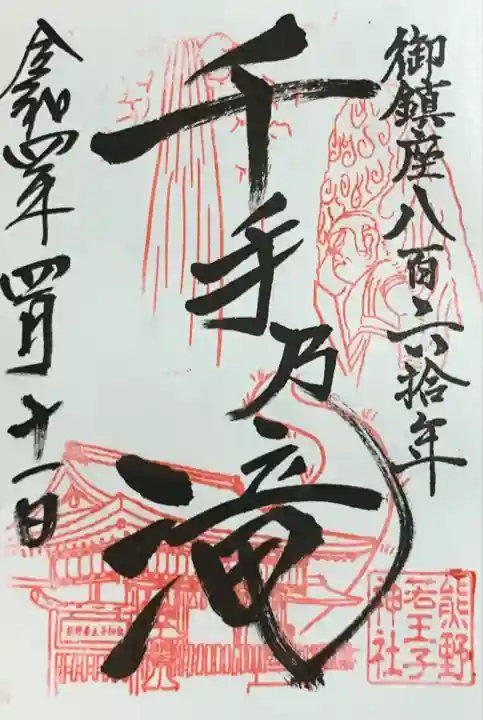 御鎮座八百六拾年
千手乃滝
令和四年四月十一日
熊野
若王子
神社